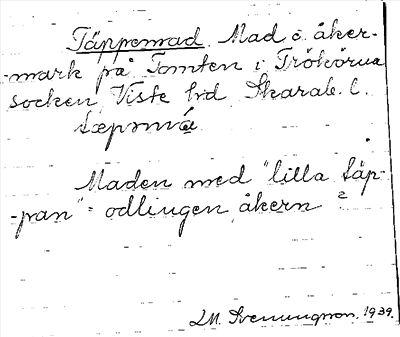 Täppemad. Mad o. åker-
-mark på Tomten i Trökörna
socken, Viste hd Skarab. l.
tæpmmá
Maden med "lilla täp-
-pan" = odlingen, åkern
LM. Svenungsson. 1939.